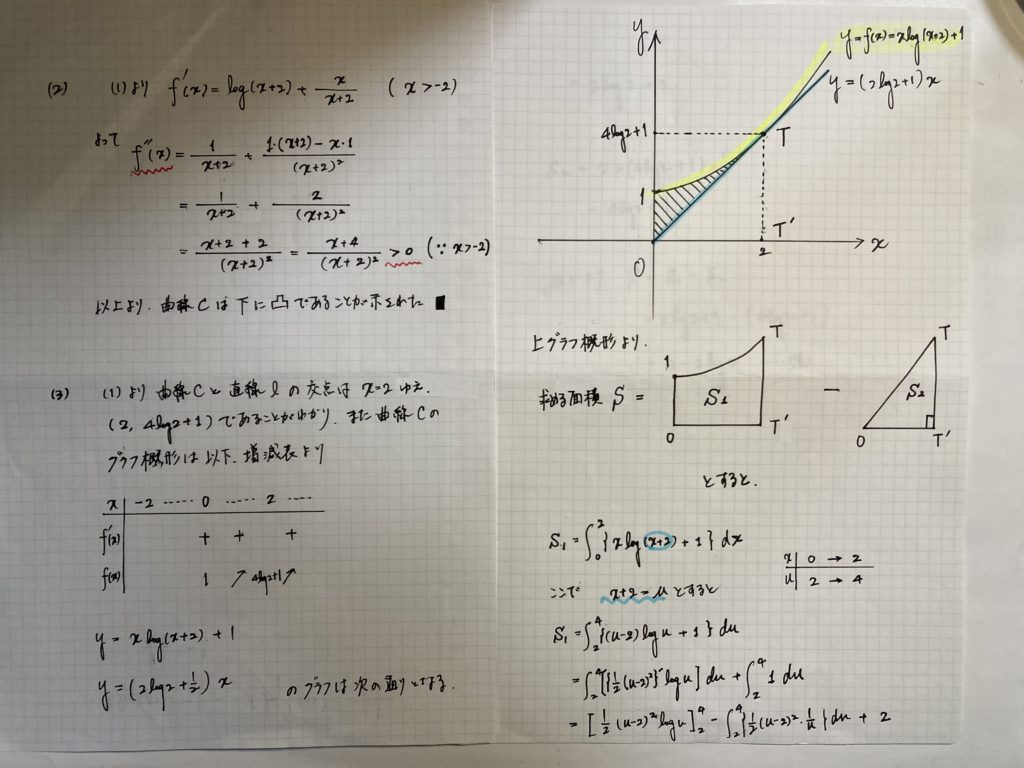 (2) (1)より f'(x) = log(x+2) + x/(x+2) (x>-2)
よって
f''(x) = 1/(x+2) + {1・(x+2) - x・1}/(x+2)²
= 1/(x+2) + 2/(x+2)²
= (x+2+2)/(x+2)² = (x+4)/(x+2)² >0 (∵ x>-2)
以上より、曲線Cは下に凸であることが示された ■
(3) (1)より 曲線Cと直線lの交点は x=2 ゆえ、
(2, 4log2+1)であることがわかり、また曲線Cの
グラフ概形は以下、増減表より
x | -2 ‥‥‥ 0 ‥‥‥ 2 ‥‥‥
f'(x) + + +
f(x) 1 ↗ 4log2+1 ↗
y = x log(x+2) + 1
y = (2log2 + 1/2) x のグラフは次の通りとなる.
y
y=f(x)=xlog(x+2)+1
y=(2log2+1)x
4log2+1
T
1
T'
0
2
x
上グラフ概形より、
求める面積 S = 1 S₁ T 0 T' - S₂ T 0 T'
とすると、
S₁ = ∫₀² {x log(x+2) + 1} dx
x | 0 → 2
u | 2 → 4
ここで x+2=u とすると
S₁ = ∫₂⁴ {(u-2) log u + 1} du
= ∫₂⁴ [{1/2(u-2)²}' log u] du + ∫₂⁴ 1 du
= [1/2 (u-2)² log u]₂⁴ - ∫₂⁴ {1/2 (u-2)²・1/u} du + 2